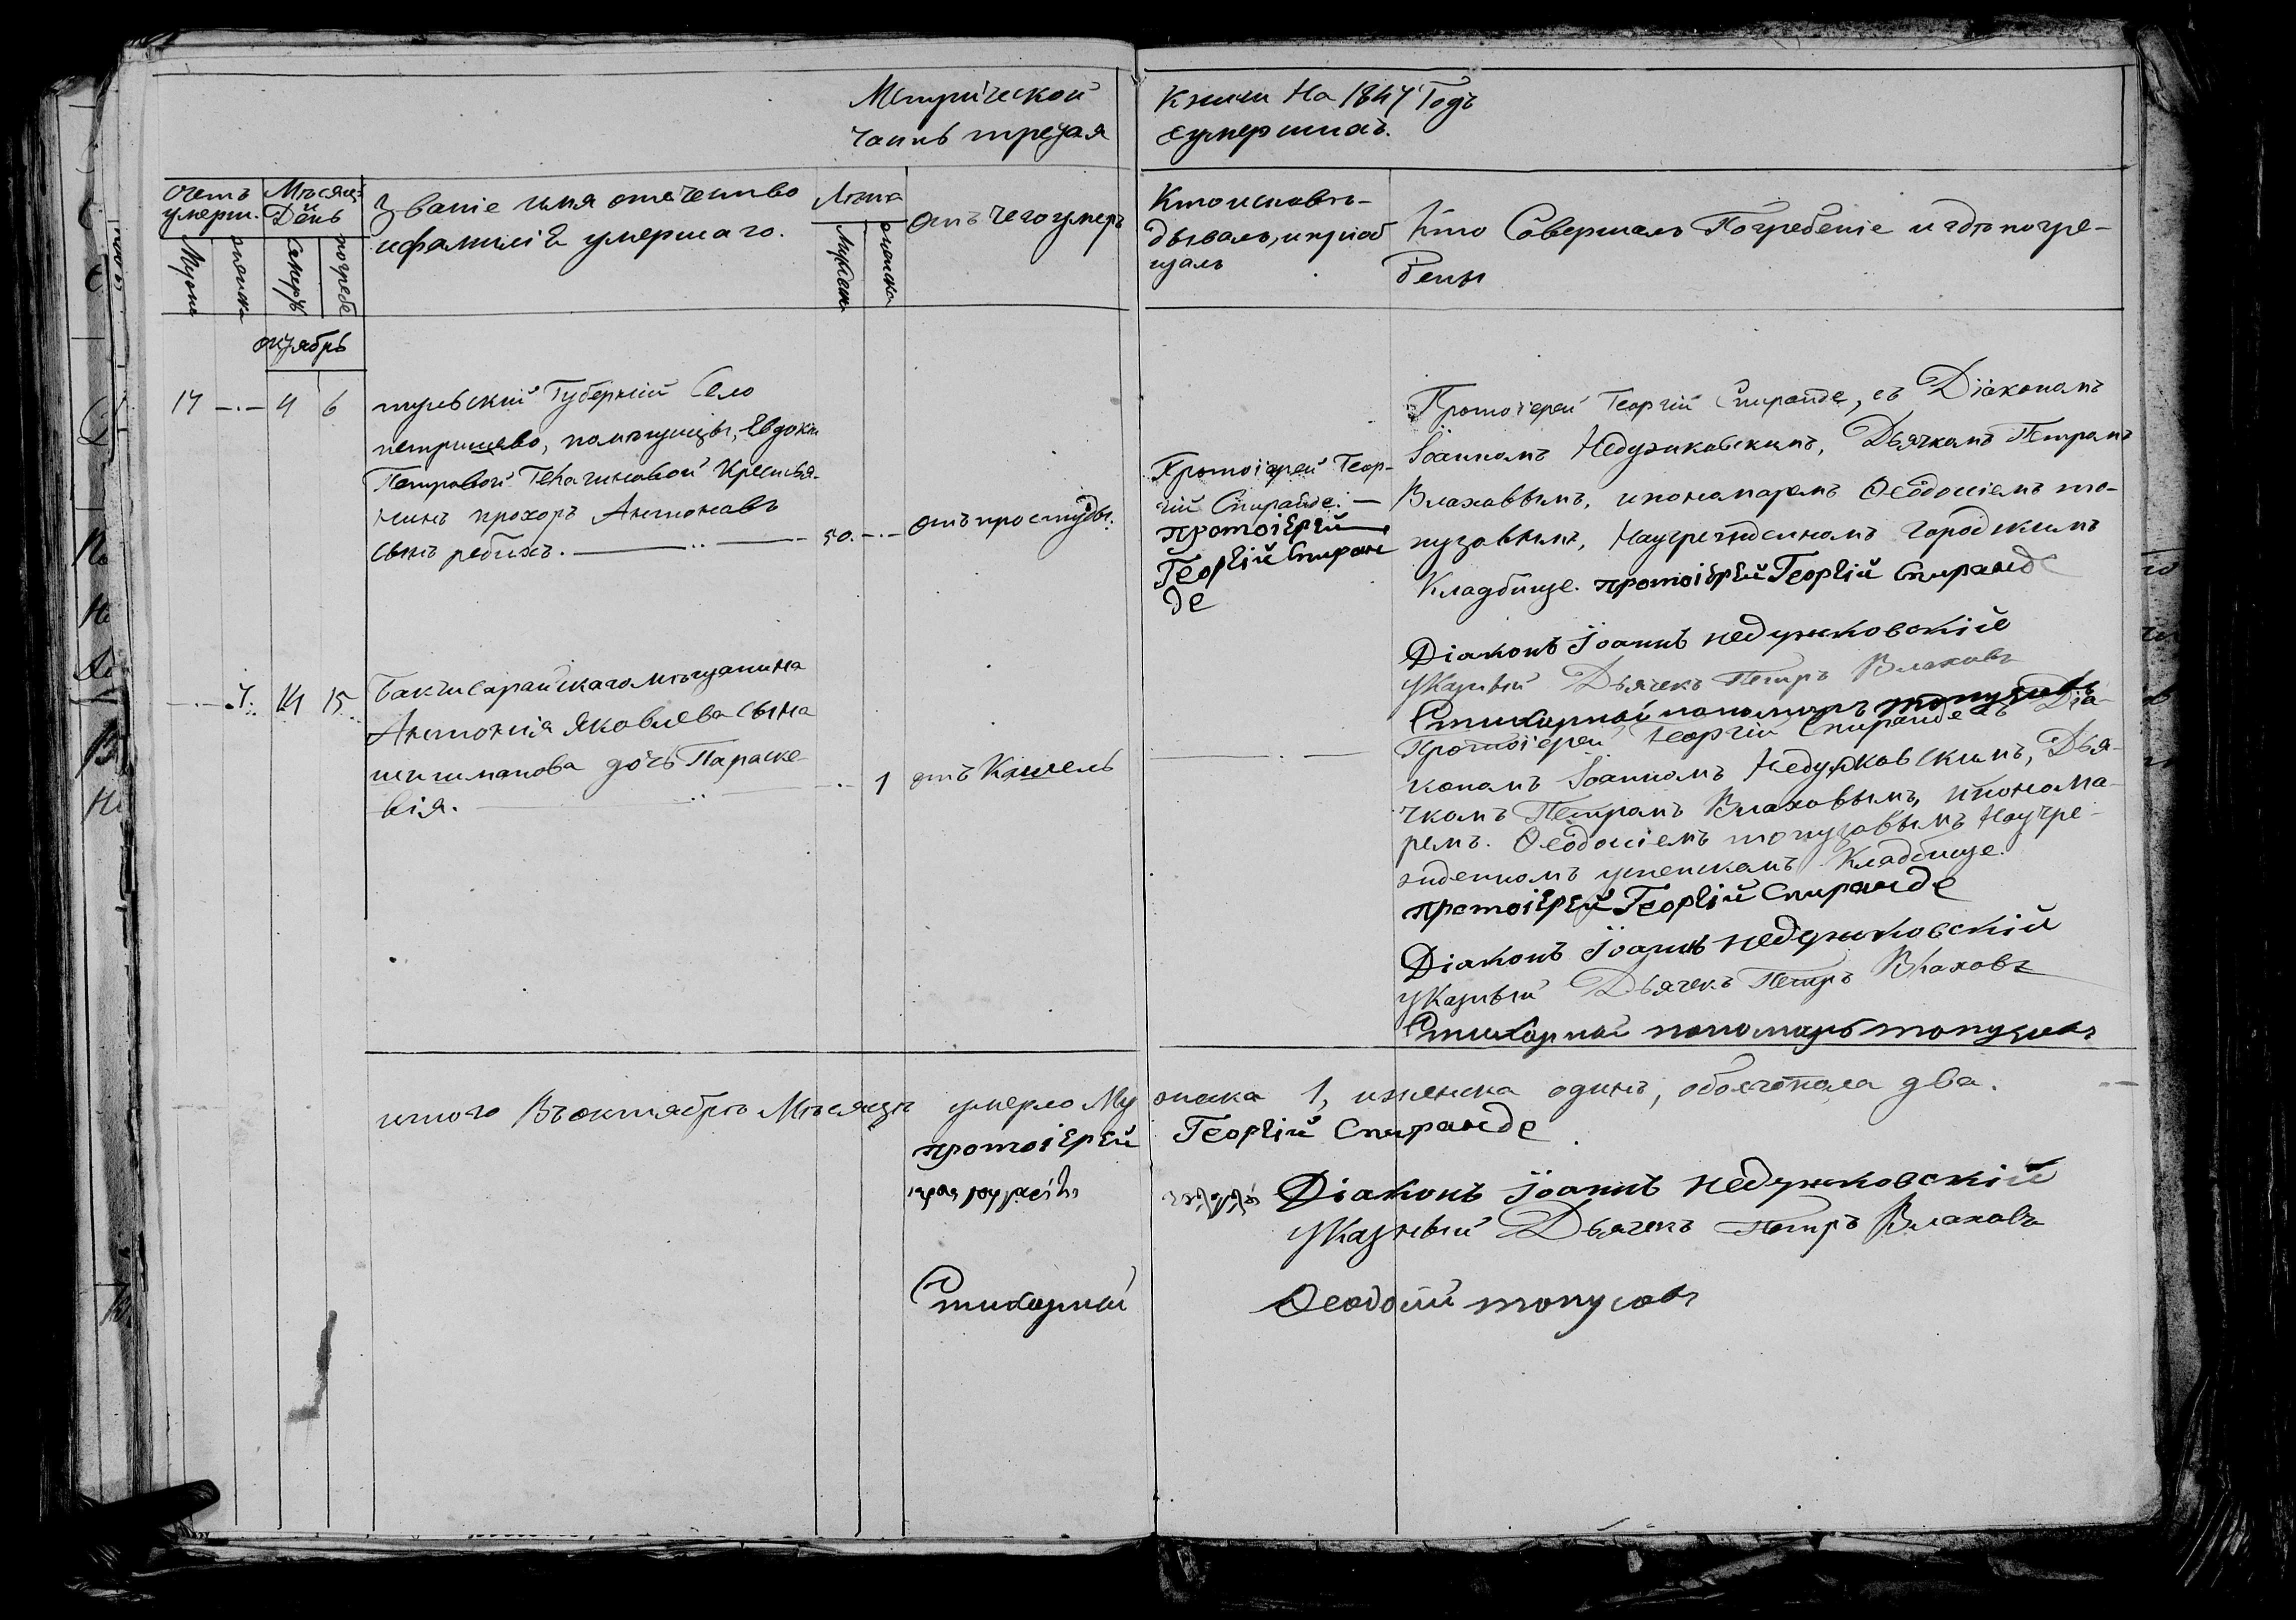 Метрической Книги На 1847 Годъ
Часть третая о умершихъ.
Счетъ умерш.
Мужес
женска
Мѣсяць День
Смерть
погребе
Званіе имя отечество
ифамилія умершаго.
Лѣта
Мужеска
женска
Отъ Чего умеръ
Кто исповѣ-
дывалъ, и пріоб
щалъ
Кто Совершалъ Погребеніе и гдѣ погре-
бены
октябрь
17 4 6
тульский Губерніи Село
петрищево, помѣщицы, Евдокіи
Петровой Крестья-
нинъ прохоръ Антоновъ
сынъ
50. Отъ простуды.
Протоіерей Геор-
гій Спиранде. —
протоіерей
Георгій Спиран
де
Протоіерей Георгій Спиранде, съ Діакономъ
Іоанномъ Недзяковскимъ, Дьячкомъ Петромъ
Влаховымъ, ипономаремъ Ѳеодосіемъ то-
пузовымъ, Научрежденомъ Городскимъ
Кладбище. протоіерей Георгій Спиранде
Діаконъ Іоаннъ недзяковскій
Указный Дьячекъ Петръ Влаховъ
Стихарный пономарь топузовъ
7. 14 15
Бакчисарайскагомѣщанина
Антонія Яковлева сына
шишманова дочь Параске-
вія.
1 отъ Кашель
Протоіерей Георгій Спиранде съ Діа-
кономъ Іоанномъ Недзяковскимъ, Дья-
чкомъ Петромъ Влаховымъ, ипонома-
ремъ. Ѳеодосіемъ топузовымъ Научре-
жденномъ успенскомъ Кладбище.
протоіерей Георгій Спиранде
Діаконъ Іоаннъ недзяковскій
указный Дьячекъ Петръ Влаховъ
Стихарной пономарь топузовъ
итого Въ октябрѣ Мѣсяцѣ умерло Му жска 1, иженска одинъ, обоегопола два.
протоіерей Георгій Спиранде
Діаконъ Іоаннъ недзяковскій
Указный Дьячекъ Петръ Влаховъ
Стихарный Ѳеодосій топузовъ